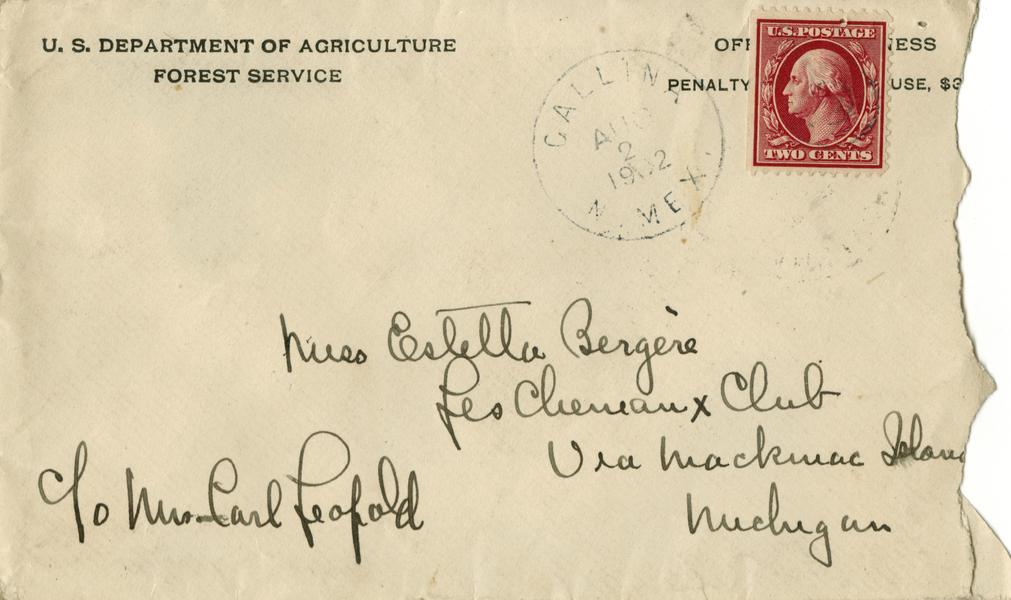 U. S. DEPARTMENT OF AGRICULTURE
FOREST SERVICE
OFF NESS
PENALTY USE, $3
U.S. POSTAGE
TWO CENTS
GALLINA
AUG
2
N. MEX.
Miss Estella Bergère
Les Cheneaux Club
Via Mackinac Islan
Michigan
C/o Mrs. Carl Leopold